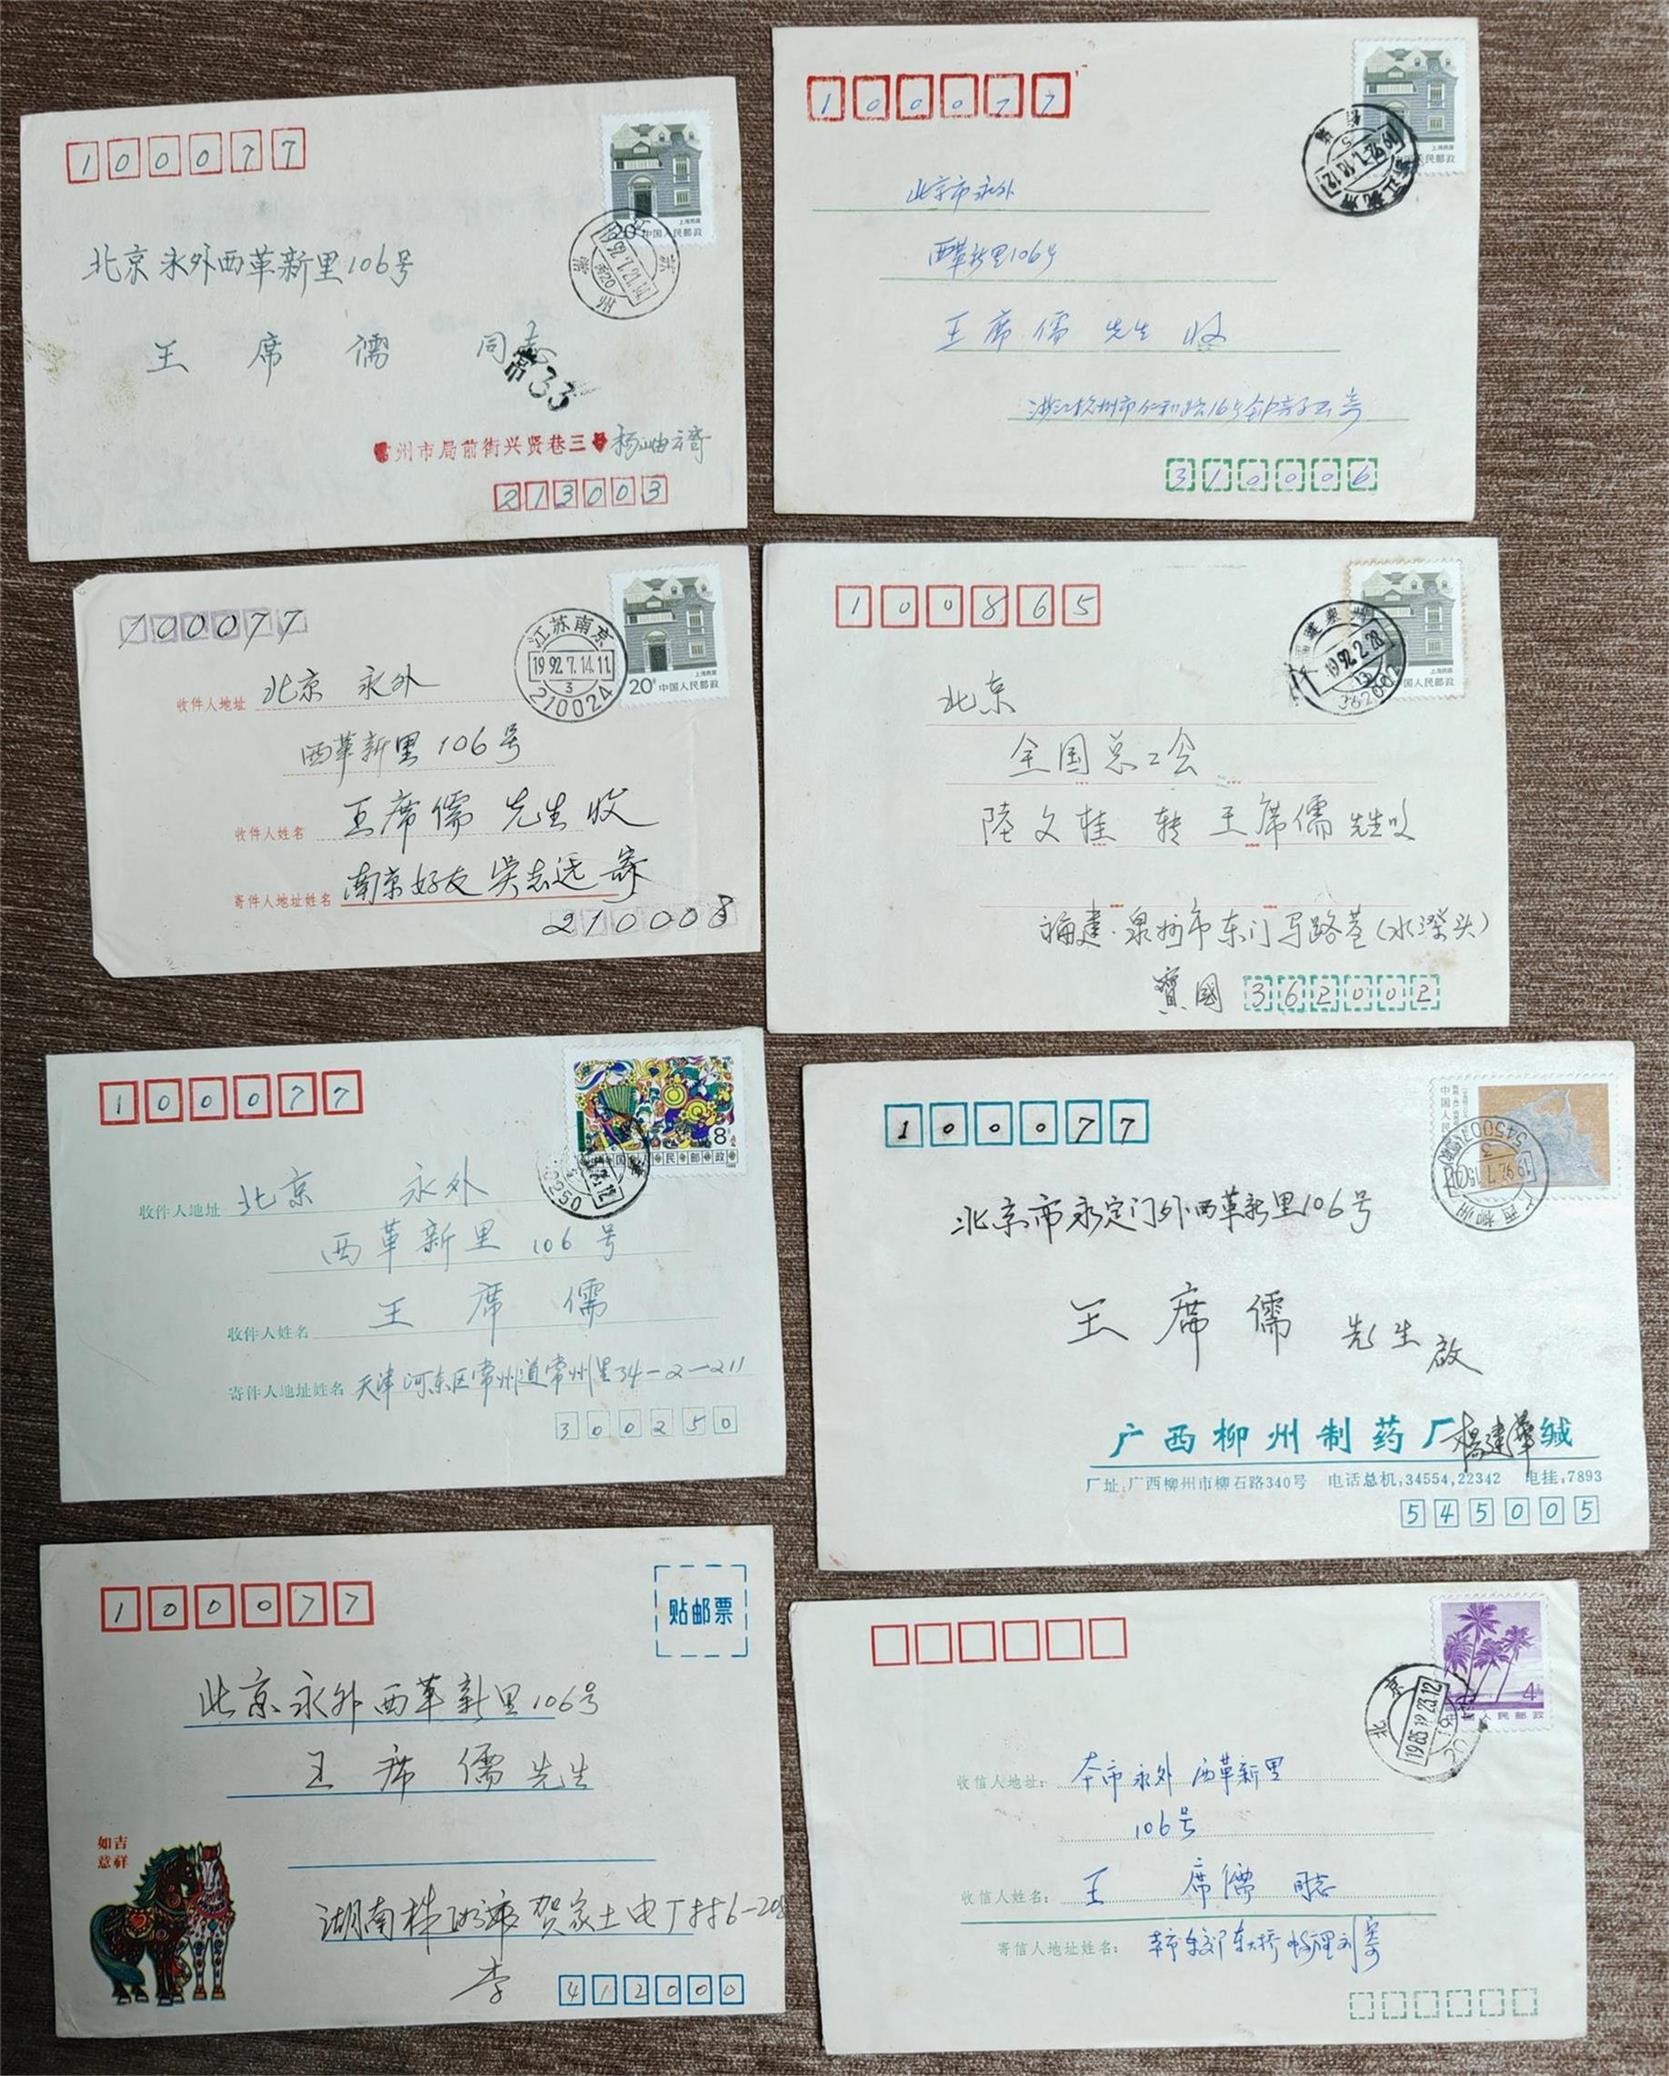 100077
北京永外西革新里106号
王席儒 同志
常33
州市局前街兴贤巷三号
213003
20
中国人民邮政
上海民居
100077
北京市永外
西革新里106号
王席儒 先生 收
310006
上海民居
100077
收件人地址 北京 永外
西革新里106号
收件人姓名 王席儒 先生收
寄件人地址姓名 南京好友 吴志远 寄
210008
江苏南京
1992.7.14.11
3
210024
20
中国人民邮政
上海民居
100865
北京
全国总工会
陸文桂 转 王席儒 先生收
福建·泉州市东门马路巷(水深头)
寶國 362002
1992.2.28
362002
上海民居
100077
收件人地址 北京 永外
西革新里 106号
收件人姓名 王席儒
寄件人地址姓名 天津河东区常州道常州里34-2-211
300250
8
中国人民邮政
100077
北京市永定门外西革新里106号
王席儒 先生 啟
广西柳州制药厂 楊建華 缄
厂址:广西柳州市柳石路340号 电话总机:34554,22342 电挂:7893
545005
广西柳州
100077
贴邮票
北京永外西革新里106号
王席儒先生
如吉
意祥
湖南株洲市贺家土电厂村6-208
李
412000
收信人地址: 本市永外 西革新里
106号
收信人姓名: 王席儒 同志
寄信人地址姓名:
北京
4
中国人民邮政